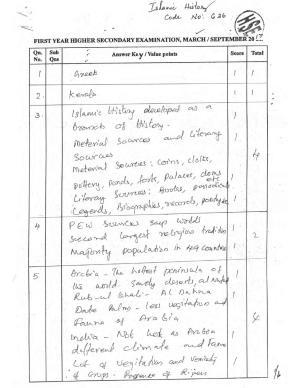 Islamic History
Code No: 636
HSE
FIRST YEAR HIGHER SECONDARY EXAMINATION, MARCH / SEPTEMBER 20
Qn. No. Sub Qns Answer Key / Value points Score Total
1 Greek 1 1
2. Kerala 1 1
3 Islamic History developed as a 1
Branch of History.
Meterial Sources and Literary 1
Sources
Meterial Sources: Coins, cloths,
pottery, Ponds, forts, Palaces, dams etc 1
Literary Sources: Books, periodicals
Legends, Biographies, records, 1
4
4 PEW Sciences says worlds
second largest religious tradition 1
Majority population in 49 countries 1
2
5 Arabia - The hottest peninsula of 1
the world Sandy deserts,
Rub-ul Khali - Al Dahna
Date Palms - Less vegitation and 1
Fauna of Arabia
India - Not hot as Arabia 1
different climate and
Lot of vegitation and Variety 1
of Crops - Presence of Rivers
4